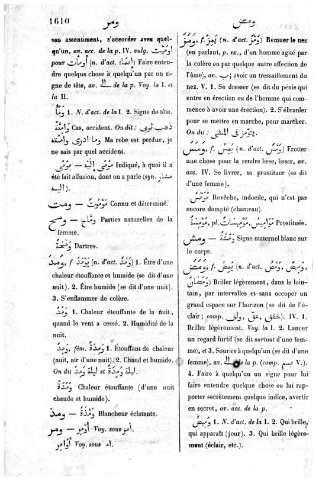 1610
ومر
ومض
son assentiment, s'accorder avec quel-
qu'un, av. acc. de la p. IV. vulg.
أومت (n. d'act. ايماء) Faire enten-
dre quelque chose à quelqu'un par un si-
gne de tête, av. ل de la p. Voy. la I. et
la II.
وَمْأٌ 1. N. d'act. de la I. 2. Signe de tête.
وامئة Cas, accident. On dit: ذهب ثوبي
وامئة Ma robe est perdue, je
ne sais par quel accident.
مومى إليه Indiqué, à quoi il a
été fait allusion, dont on a parlé (syn. مشار
إليه).
ومت — Connu et déterminé.
ومح — Parties naturelles de la
femme.
Dartres.
ومد f. يومد (n. d'act. ومد) 1. Être d'une
chaleur étouffante et humide (se dit d'une
nuit). 2. Être humide (se dit d'une nuit).
3. S'enflammer de colère.
ومد 1. Chaleur étouffante de la nuit,
quand le vent a cessé. 2. Humidité de la
nuit.
ومد, fém. ومدة 1. Étouffant de chaleur
(nuit, air d'une nuit). 2. Chaud et humide.
On dit: ليلة ومد et ليلة ومدة.
ومدة Chaleur étouffante (d'une nuit
chaude et humide).
ومذ — Blancheur éclatante.
ومر — اوامر Voy. sous أمر.
أوامير Voy. sous أمر.
Remuer le nez
(en parlant, av. p., d'un homme agité par
la colère ou par quelque autre affection de
l'âme), av. ب; avoir un tressaillement du
nez. V. 1. Se dresser (se dit du pénis qui
entre en érection ou de l'homme qui com-
mence à avoir une érection). 2. S'ébranler
pour se mettre en marche, pour marcher.
On dit: يتومز في المشي.
ومس f. يمس (n. d'act. ومس) Frotter
une chose pour la rendre lisse, lisser, av.
acc. IV. Se livrer, se prostituer (se dit
d'une femme).
Revêche, indocile, qui n'est pas
encore dompté (chameau).
مومس, مومسة, pl. مومسات Prostituée.
ومش — ومشة Signe maternel blanc sur
le corps.
ومض f. يمض (n. d'act. ومض, وميض,
ومضان) Briller légèrement, dans le loin-
tain, par intervalles et sans occuper un
grand espace sur l'horizon (se dit de l'é-
clair; comp. خفى, عق, ولف). IV. 1.
Briller légèrement. Voy. la I. 2. Lancer
un regard furtif (se dit surtout d'une fem-
me), et 3. Sourire à quelqu'un (se dit d'une
femme), av. acc. de la p. (comp. بسم V.).
4. Faire à quelqu'un un signe pour lui
faire entendre quelque chose ou lui rap-
porter secrètement quelque indice, avertir
en secret, av. acc. de la p.
ومض 1. N. d'act. de la I. 2. Qui brille,
qui apparaît (jour). 3. Qui brille légère-
ment (éclair, etc.).